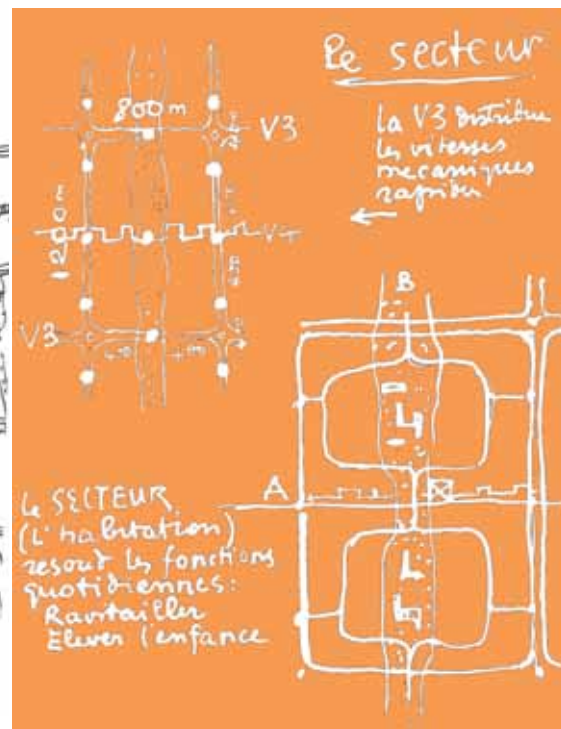 Le secteur
800 m
V3
la V3 distribue
les vitesses
mecaniques
rapides
1200 m
V4
V3
B
A
Le SECTEUR
(L'habitation)
resout les fonctions
quotidiennes:
Ravitailler
Elever l'enfance